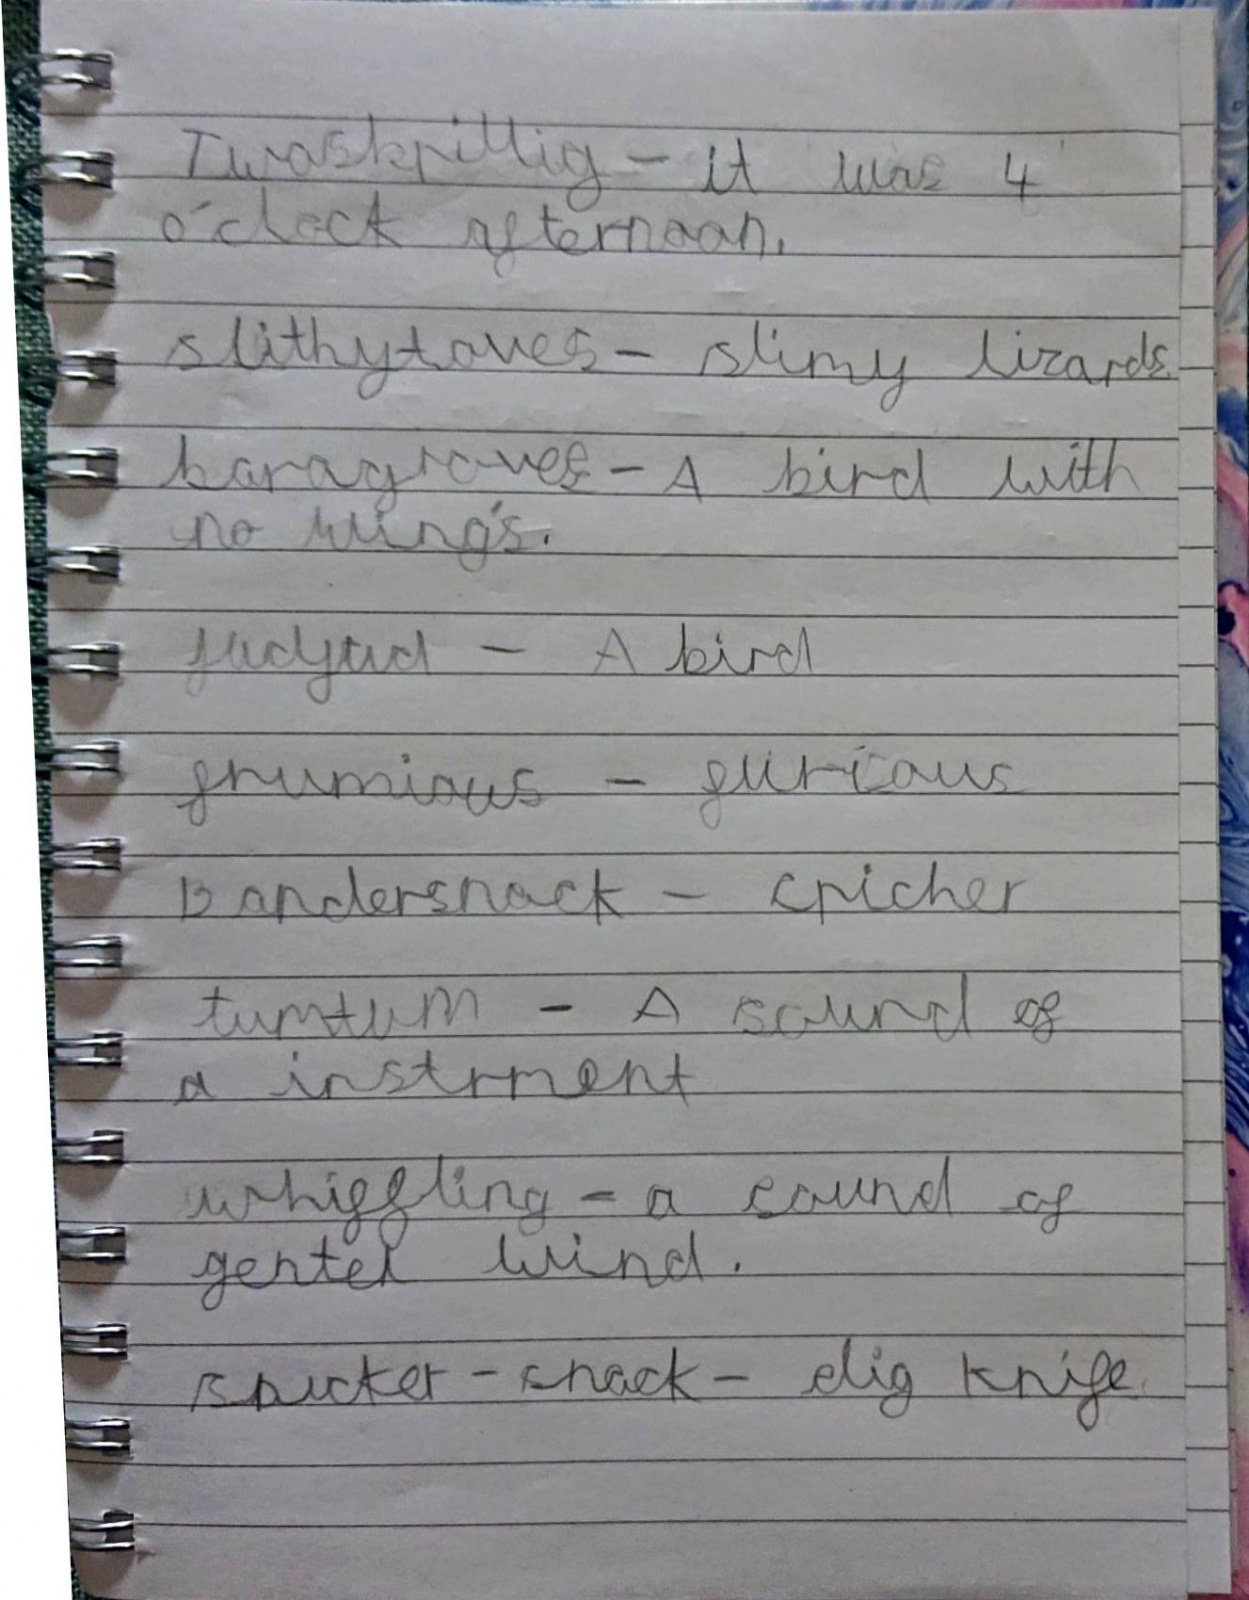 Twaskrillig - it was 4
o'clock afternoon.
slithytoves - slimy lizards
boragroves - A bird with
no wing's.
Judjud - A bird
frumious - furious
Bandersnack - cricher
tumtum - A sound of
a instrment
whiffling - a sound of
gentel wind.
snicker - snack - dig knife